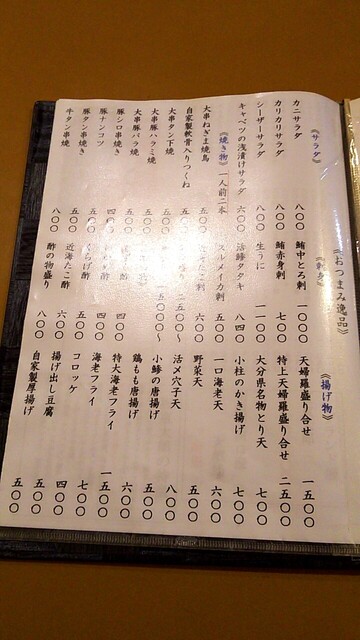 《おつまみ逸品》
《サラダ》
カニサラダ 八〇〇
カリカリサラダ 八〇〇
シーザーサラダ 八〇〇
キャベツの浅漬けサラダ 六〇〇
《焼き物》一人前二本
大串ねぎま焼鳥
自家製軟骨入りつくね
大串タン下焼
大串豚ハラミ焼
大串豚バラ焼
豚シロ串焼き
豚ナンコツ
豚タン串焼き 五〇〇
牛タン串焼 八〇〇
鮪中とろ刺 一〇〇〇
鮪赤身刺 七〇〇
生うに 一一〇〇
活鯵タタキ 八四〇
スルメイカ刺 五〇〇
六〇〇
くらげ酢 五〇〇
近海たこ酢 六〇〇
酢の物盛り 八〇〇
《揚げ物》
天婦羅盛り合せ 一五〇〇
特上天婦羅盛り合せ 二五〇〇
大分県名物とり天 七〇〇
小柱のかき揚げ 七〇〇
一口海老天 六〇〇
野菜天 五〇〇
活〆穴子天 八〇〇
小鯵の唐揚げ 五〇〇
鶏もも唐揚げ 六〇〇
特大海老フライ 一五〇〇
海老フライ
コロッケ 五〇〇
揚げ出し豆腐 四〇〇
自家製厚揚げ 五〇〇